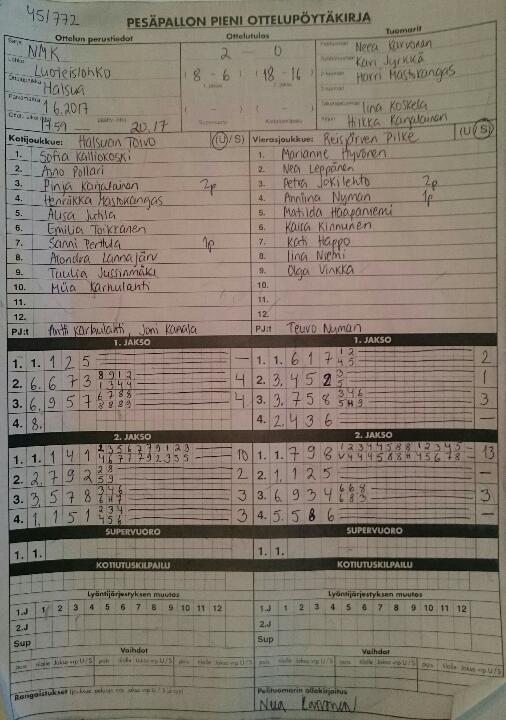 45/772
PESÄPALLON PIENI OTTELUPÖYTÄKIRJA
Ottelun perustiedot Ottelutulos Tuomarit
Sarja NMK 2 - 0 Neea Karvonen
Lohko Luoteislohko (8 - 6) (18 - 16) Kari Jyrkkä
Halsua Harri Mastokangas
1.6.2017 ( - ) ( - ) Iina Koskela
1759 20.17 Supervuoro Kotiutuskilpailu Hilkka Kanalainen
Kotijoukkue: Halsuan Toivo (U/S) Vierasjoukkue: Reisjärven Pilke (U/S)
1. Sofia Kalliokoski 1. Marianne Hyvönen
2. Anno Pollari 2. Nea Leppänen
3. Pinja Kanalainen 2p 3. Petra Jokilehto 2p
4. Henriikka Mastokangas 4. Anniina Nyman 1p
5. Alisa Juhla 5. Matilda Haapaniemi
6. Emilia Toikkanen 6. Kaisa Kinnunen
7. Sanni Penttula 1p 7. Kati Happo
8. Alondra Lannajärv 8. Iina Niemi
9. Tuulia Jussinmäki 9. Olga Vinkka
10. Miia Karhulahti 10.
11. 11.
12. 12.
PJ:t Antti Karhulahti, Joni Kanala PJ:t Teuvo Nyman
1. JAKSO 1. JAKSO
1. 1. 1 2 5 – 1. 1. 6 1 7 1 2 4 5 2
2. 6. 6 7 3 8 9 1 2 1 3 4 4 4 2. 3. 4 5 2 3 5 1
3. 6. 9 5 7 6 7 8 8 8 8 8 9 4 3. 3. 7 5 8 3 4 6 5 H 9 3
4. 8. 4. 2. 4 3 6 –
2. JAKSO 2. JAKSO
1. 1. 1 4 1 2 3 5 6 7 7 9 1 2 3 4 6 7 7 7 9 2 3 3 5 10 1. 1. 7 9 8 1 2 3 4 4 5 8 8 1 2 3 4 5 13
2. 2. 7 9 2 2 8 5 9 2 2. 1. 1 2 5 –
3. 3. 5 7 8 3 4 6 6 H 7 3 3. 6. 9 3 4 6 6 8 6 8 3 3
4. 1. 1 5 1 2 3 4 4 5 6 3 4. 5. 5 8 6 –
SUPERVUORO SUPERVUORO
1. 1. 1. 1.
KOTIUTUSKILPAILU KOTIUTUSKILPAILU
Lyöntijärjestyksen muutos Lyöntijärjestyksen muutos
1.J 1 2 3 4 5 6 7 8 9 10 11 12 1.J 1 2 3 4 5 6 7 8 9 10 11 12
2.J 2.J
Sup Sup
Vaihdot Vaihdot
pois tilalle Jakso vrp U / S pois tilalle Jakso vrp U / S pois tilalle Jakso vrp U / S pois tilalle Jakso vrp U / S
Rangaistukset Pelituomarin allekirjoitus
Neea Karvonen